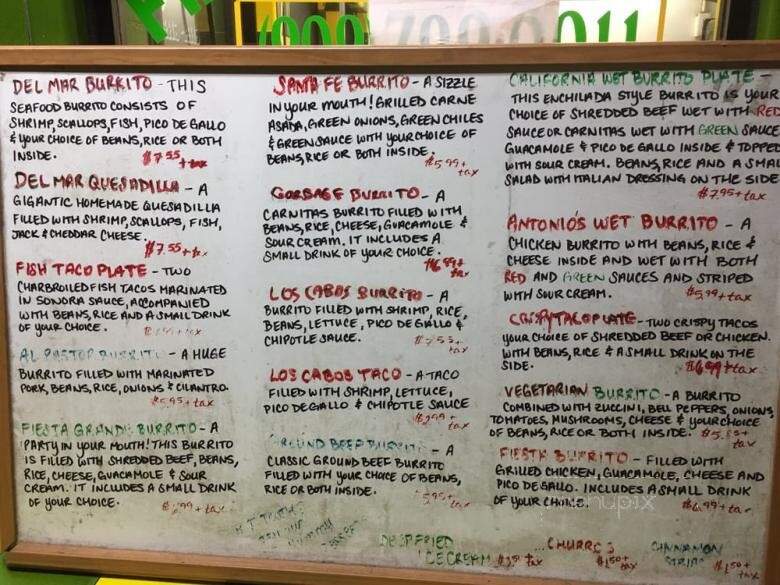 DEL MAR BURRITO - THIS
SEAFOOD BURRITO CONSISTS OF
SHRIMP, SCALLOPS, FISH, PICO DE GALLO
& YOUR CHOICE OF BEANS, RICE OR BOTH
INSIDE. $7.55 + tax
DEL MAR QUESADILLA - A
GIGANTIC HOMEMADE QUESADILLA
FILLED WITH SHRIMP, SCALLOPS, FISH,
JACK & CHEDDAR CHEESE. $7.55 + tx
FISH TACO PLATE - TWO
CHARBROILED FISH TACOS MARINATED
IN SONORA SAUCE, ACCOMPANIED
WITH BEANS, RICE AND A SMALL DRINK
OF YOUR CHOICE.
AL PASTOR BURRITO - A HUGE
BURRITO FILLED WITH MARINATED
PORK, BEANS, RICE, ONIONS & CILANTRO.
$5.95 + tax
FIESTA GRANDE BURRITO - A
PARTY IN YOUR MOUTH! THIS BURRITO
IS FILLED WITH SHREDDED BEEF, BEANS,
RICE, CHEESE, GUACAMOLE & SOUR
CREAM. IT INCLUDES A SMALL DRINK
OF YOUR CHOICE. $6.99 + tax
SANTA FE BURRITO - A SIZZLE
IN YOUR MOUTH! GRILLED CARNE
ASADA, GREEN ONIONS, GREEN CHILES
& GREEN SAUCE WITH YOUR CHOICE OF
BEANS, RICE OR BOTH INSIDE. $5.99 + tax
GARBAGE BURRITO - A
CARNITAS BURRITO FILLED WITH
BEANS, RICE, CHEESE, GUACAMOLE &
SOUR CREAM. IT INCLUDES A
SMALL DRINK OF YOUR CHOICE.
$6.99 + tax
LOS CABOS BURRITO - A
BURRITO FILLED WITH SHRIMP, RICE,
BEANS, LETTUCE, PICO DE GALLO &
CHIPOTLE SAUCE. $7.55 + tax
LOS CABOS TACO - A TACO
FILLED WITH SHRIMP, LETTUCE,
PICO DE GALLO & CHIPOTLE SAUCE
$2.99 + tax
GROUND BEEF BURRITO - A
CLASSIC GROUND BEEF BURRITO
FILLED WITH YOUR CHOICE OF BEANS,
RICE OR BOTH INSIDE. $5.95 + tax
CALIFORNIA WET BURRITO PLATE -
THIS ENCHILADA STYLE BURRITO IS YOUR
CHOICE OF SHREDDED BEEF WET WITH RED
SAUCE OR CARNITAS WET WITH GREEN SAUCE
GUACAMOLE & PICO DE GALLO INSIDE & TOPPED
WITH SOUR CREAM. BEANS, RICE AND A SMALL
SALAD WITH ITALIAN DRESSING ON THE SIDE
$7.95 + tax
ANTONIO'S WET BURRITO - A
CHICKEN BURRITO WITH BEANS, RICE &
CHEESE INSIDE AND WET WITH BOTH
RED AND GREEN SAUCES AND STRIPED
WITH SOUR CREAM. $5.99 + tax
CRISPY TACO PLATE - TWO CRISPY TACOS
YOUR CHOICE OF SHREDDED BEEF OR CHICKEN.
WITH BEANS, RICE & A SMALL DRINK ON THE
SIDE. $6.99 + tax
VEGETARIAN BURRITO - A BURRITO
COMBINED WITH ZUCCINI, BELL PEPPERS, ONIONS,
TOMATOES, MUSHROOMS, CHEESE & YOUR CHOICE
OF BEANS, RICE OR BOTH INSIDE. $5.85 + tax
FIESTA BURRITO - FILLED WITH
GRILLED CHICKEN, GUACAMOLE, CHEESE AND
PICO DE GALLO. INCLUDES A SMALL DRINK
OF YOUR CHOICE. $6.99 + tax
menupix
DEEP FRIED
ICE CREAM + tax
CHURROS
$1.50 + tax
CINNAMON
STRIPS $1.50 + tax